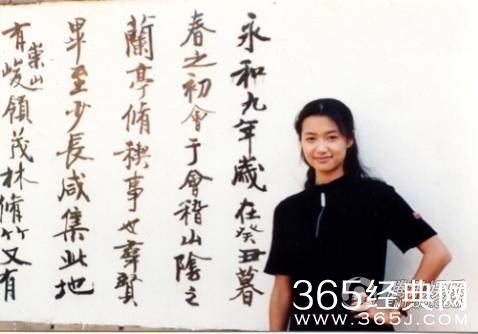 永和九年歲在癸丑暮
春之初會于會稽山陰之
蘭亭脩稧事也羣賢
畢至少長咸集此地
有崇山峻領茂林脩竹又有
365经典网
WWW.365J.COM